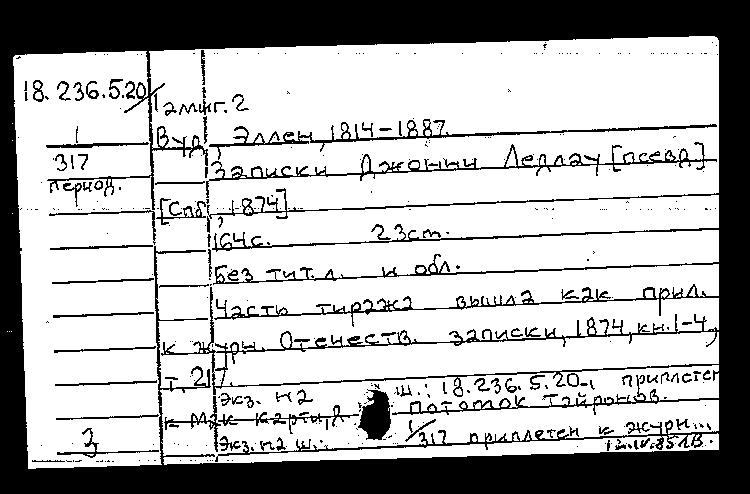 18.236.5.20/1 эмиг.2
1
317
период.
Вуд, Эллен, 1814-1887.
Записки Джонни Ледлау [псевд]
[Спб, 1874].
164с. 23ст.
Без тит.л. и обл.
Часть тиража вышла как прил.
к журн. Отечеств. записки, 1874, кн.1-4,
т. 217.
Экз. н2 ш.: 18.236.5.20-1 приплетен
к Мак Карти, Потомок Тайронов.
Экз. н2 ш.: 1/317 приплетен к журн...
2
12.IV.85 ЛВ.